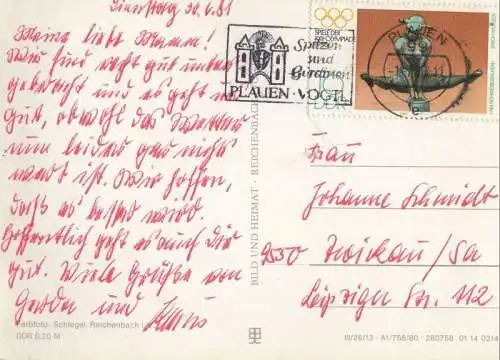 Dienstag 30.6.81
Meine liebe Mamm!
Wir sind recht gut unter
gebracht und es geht
gut, obwohl das Wetter
nun leider gar nicht
warst ist. Wir hoffen,
daß es besser wird.
Hoffentlich geht es auch Dir
gut. Viele Grüße von
Gerda und Hans
Farbfoto: Schlegel, Reichenbach
DDR 0,20 M
BILD UND HEIMAT · REICHENBACH
SPIELE DER
OLYMPIADE
Spitzen
und
Gardinen
PLAUEN · VOGTL.
PLAUEN
DDR
Frau
Johanne Schmidt
9550 Zwickau/Sa
Leipziger Str. 112
III/26/13 · A1/758/80 280758 01 14 0314